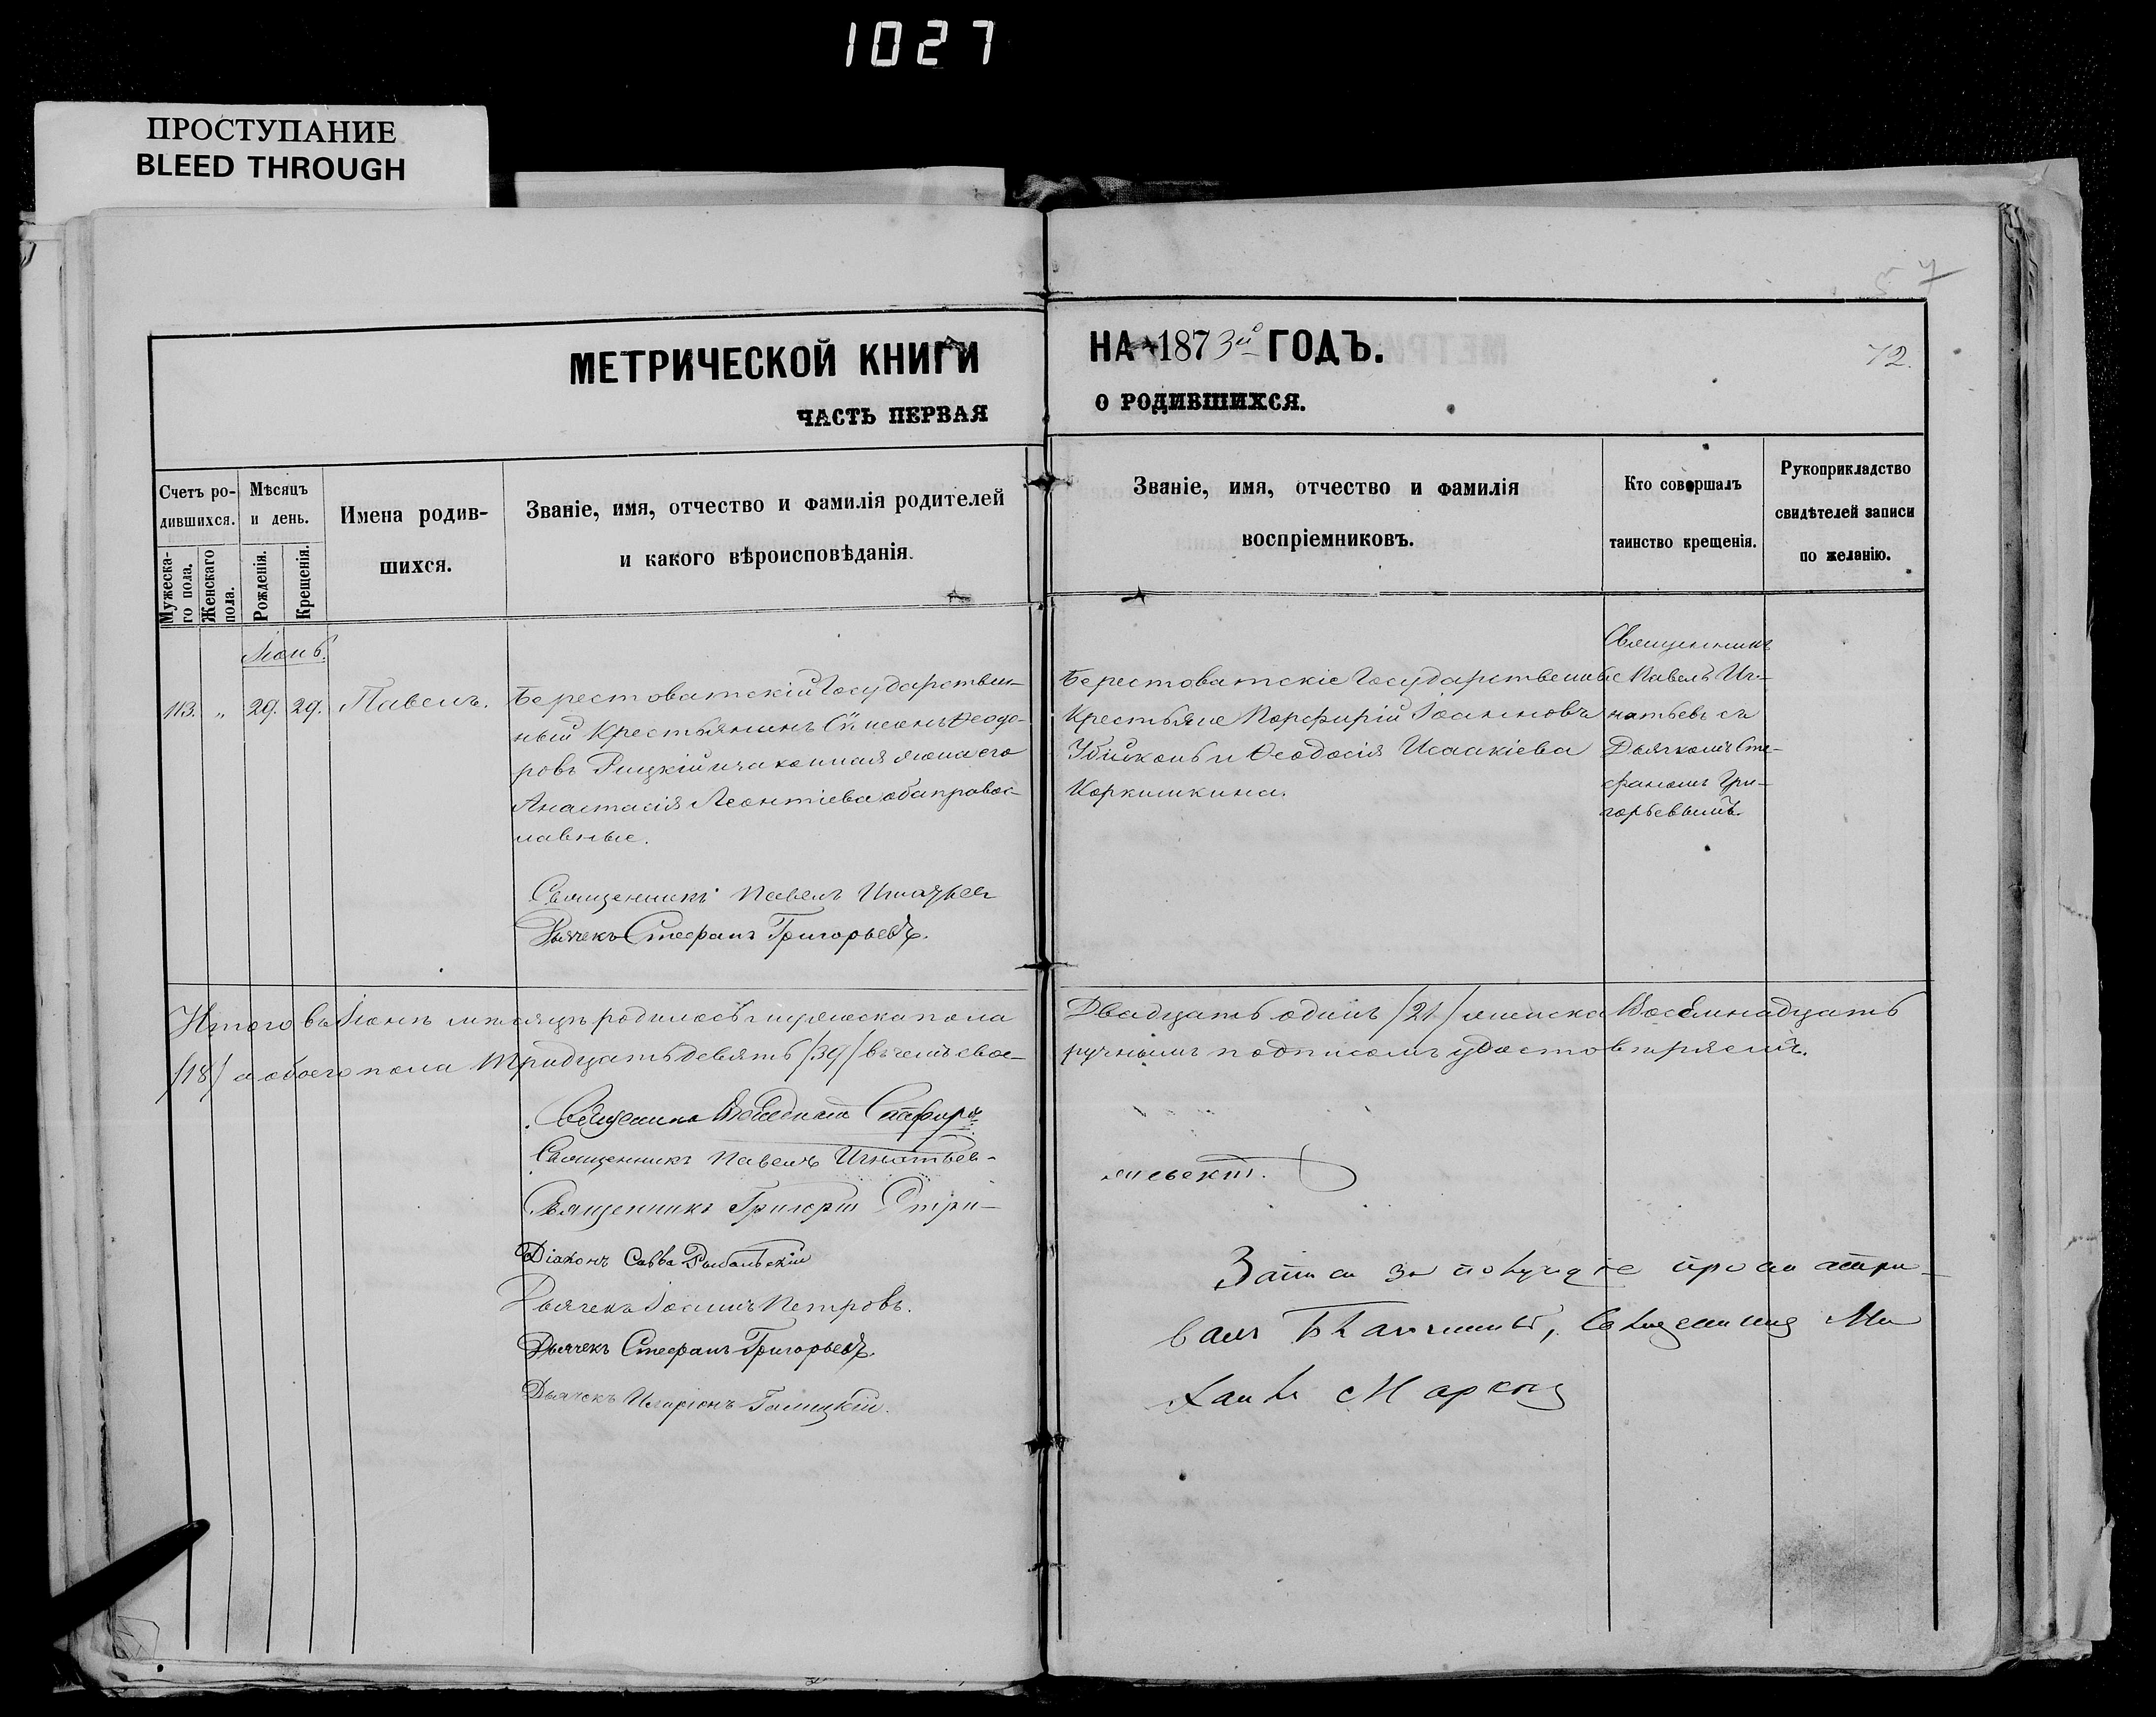 1027
ПРОСТУПАНИЕ
BLEED THROUGH
57
МЕТРИЧЕСКОЙ КНИГИ
НА 1873й ГОДЪ.
72.
ЧАСТЬ ПЕРВАЯ
О РОДИВШИХСЯ.
Счетъ ро-
дившихся.
Мужеска-
го пола.
Женскаго
пола.
Мѣсяцъ
и день.
Рожденія.
Крещенія.
Имена родив-
шихся.
Званіе, имя, отчество и фамилія родителей
и какого вѣроисповѣданія.
Званіе, имя, отчество и фамилія
воспріемниковъ.
Кто совершалъ
таинство крещенія.
Рукоприкладство
свидѣтелей записи
по желанію.
Іюнь.
113. „ 29. 29. Павелъ.
Берестоватскій Государствен-
ный Крестьянинъ Сѵмеонъ Ѳеодо-
ровъ Рицкій и законная жена его
Анастасія Леонтіева оба правос-
лавные.
Священникъ Павелъ Игнатьев
Дьячекъ Стефанъ Григорьевъ.
Берестоватскіе Государственные
Крестьяне Порфирій Іоанновъ
Убійконь и Ѳеодосія Исаакіева
Коркишкина.
Священникъ
Павелъ Иг-
натьевъ съ
Дьячкомъ Сте-
фаномъ Гри-
горьевымъ.
Итого въ Іюнѣ мѣсяцѣ родилось мужеска пола
Двадцать одинъ /21/ женска Восемнадцать
/18/ а обоего пола Тридцать девять /39/ въ чемъ свое-
ручнымъ подписомъ удостовѣряемъ.
Священникъ
Священникъ Павелъ Игнатьев
Священникъ Григорій Стри-
жевскій.
Діаконъ Савва Рыбальскій
Дьячекъ Іоаннъ Петровъ.
Дьячекъ Стефанъ Григорьевъ.
Дьячекъ Иларіонъ Галицкій.
Записи за полугодіе просматри-
валъ Благочинный, Священникъ Ми
хаилъ